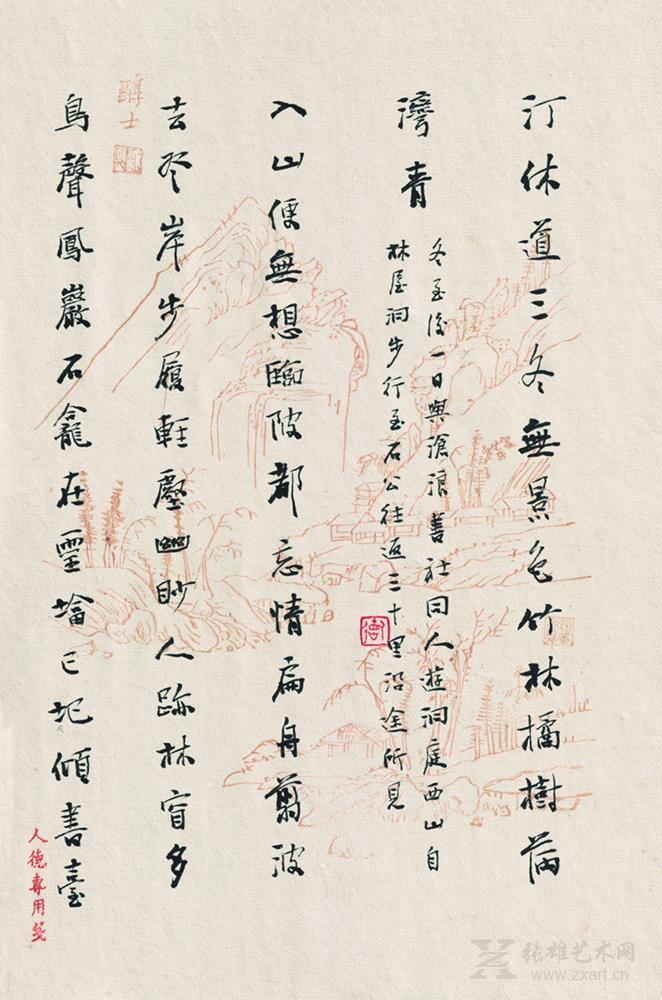 汀休道三冬無景色竹林橘樹
灣青
冬至後一日與滄浪書社同人遊洞庭西山自
林屋洞步行至石公往返三十里沿途所見
入山便無想臨陂都忘情扁舟翦波
去尽岸步履輕壑幽眇人跡林窅多
鳥聲鳳巖石龕在靈墖已圮傾書臺
醇士
人德專用箋
张雄艺术网
www.zxart.cn